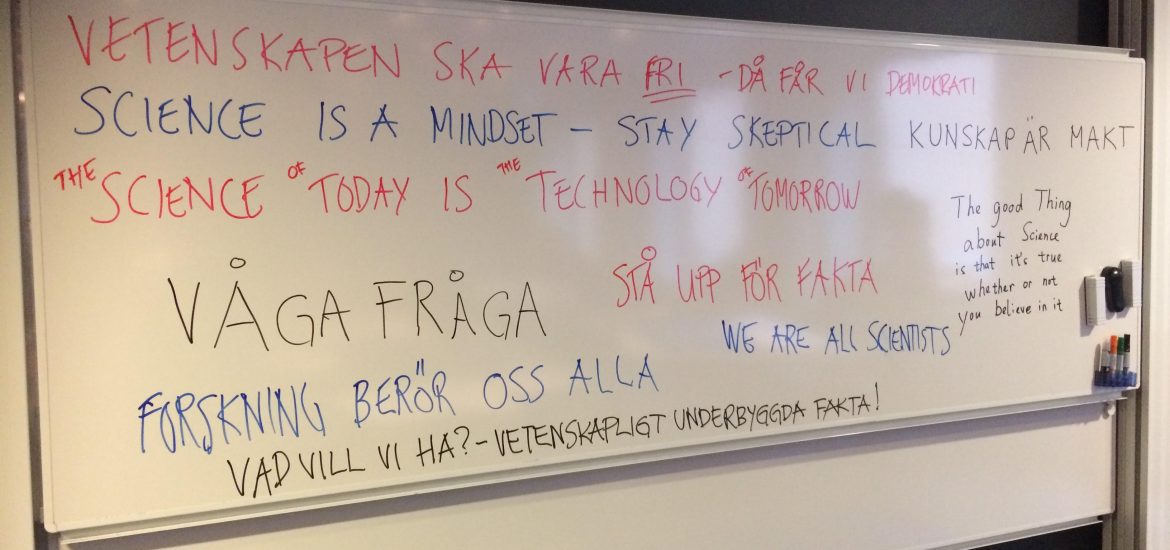 VETENSKAPEN SKA VARA FRI - DÅ FÅR VI DEMOKRATI
SCIENCE IS A MINDSET - STAY SKEPTICAL
KUNSKAP ÄR MAKT
THE SCIENCE OF TODAY IS THE TECHNOLOGY OF TOMORROW
The good Thing
about Science
is that it's true
whether or not
you believe in it
STÅ UPP FÖR FAKTA
VÅGA FRÅGA
WE ARE ALL SCIENTISTS
FORSKNING BERÖR OSS ALLA
VAD VILL VI HA? - VETENSKAPLIGT UNDERBYGGDA FAKTA!